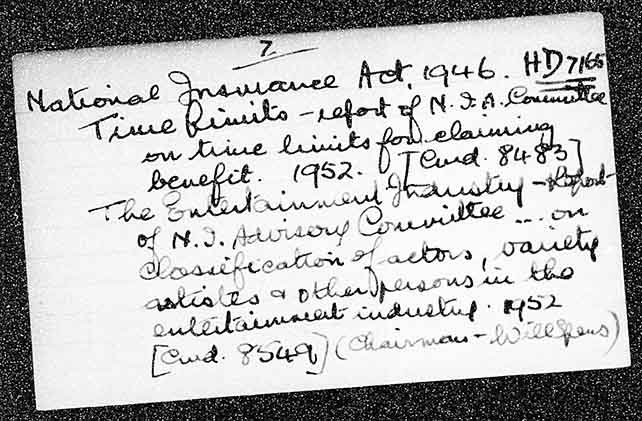 7
National Insurance Act, 1946. HD7165
Time Limits - report of N.I.A. Committee
on time limits for claiming
benefit. 1952. [Cmd. 8483]
The Entertainment Industry - Report
of N.I. Advisory Committee ... on
classification of actors, variety
artistes & other persons in the
entertainment industry. 1952
[Cmd. 8549] (Chairman -